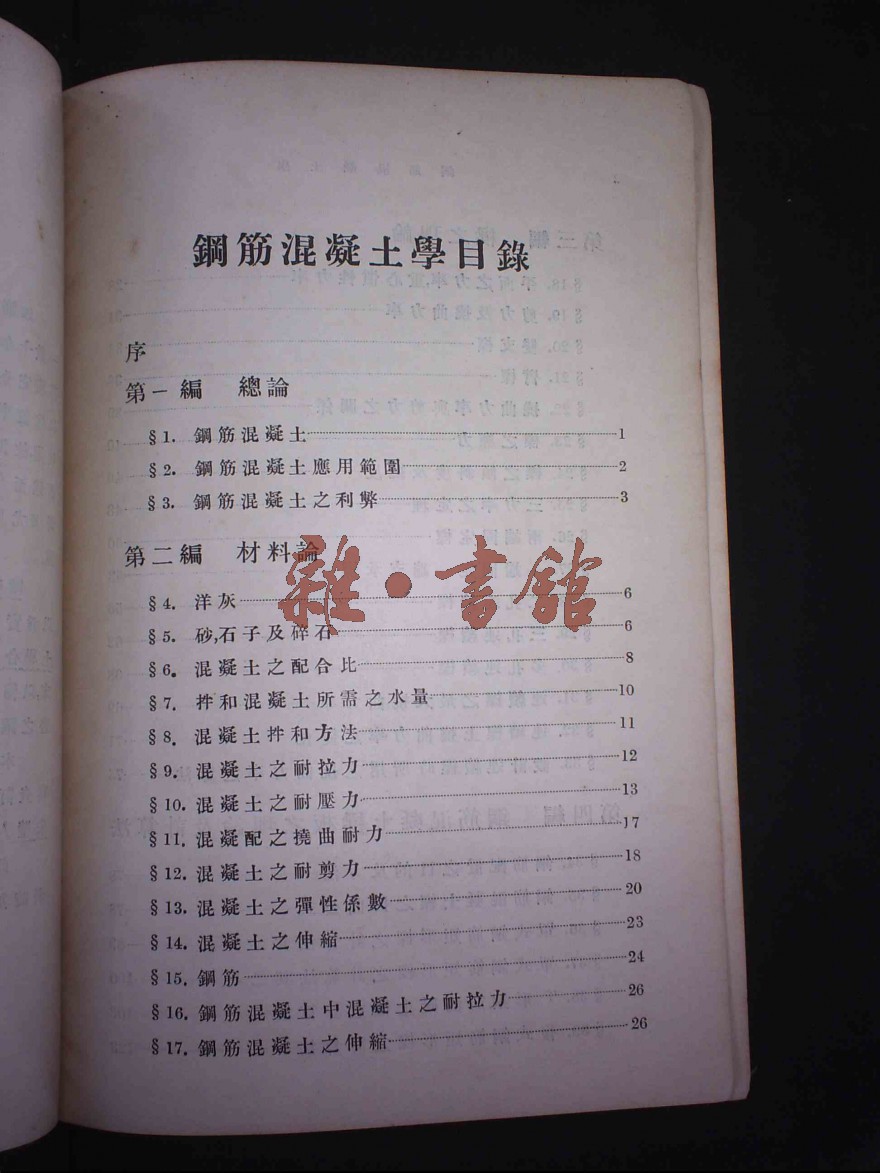 鋼筋混凝土學目錄
序
第一編 總論
§1. 鋼筋混凝土 1
§2. 鋼筋混凝土應用範圍 2
§3. 鋼筋混凝土之利弊 3
第二編 材料論
雜·書館
§4. 洋灰 6
§5. 砂,石子及碎石 6
§6. 混凝土之配合比 8
§7. 拌和混凝土所需之水量 10
§8. 混凝土拌和方法 11
§9. 混凝土之耐拉力 12
§10. 混凝土之耐壓力 13
§11. 混凝配之撓曲耐力 17
§12. 混凝土之耐剪力 18
§13. 混凝土之彈性係數 20
§14. 混凝土之伸縮 23
§15. 鋼筋 24
§16. 鋼筋混凝土中混凝土之耐拉力 26
§17. 鋼筋混凝土之伸縮 26